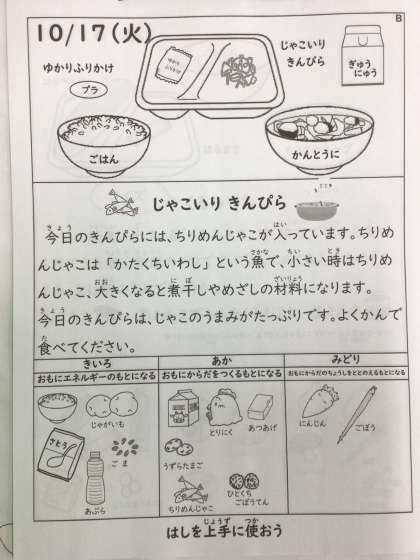 B
10/17(火)
ゆかりふりかけ
プラ
ゆかり
ふりかけ
じゃこいり
きんぴら
ぎゅう
にゅう
ごはん
かんとうに
じゃこいり きんぴら
今日のきんぴらには、ちりめんじゃこが入っています。ちりめ
んじゃこは「かたくちいわし」という魚で、小さい時はちりめ
んじゃこ、大きくなると煮干しやめざしの材料になります。
今日のきんぴらは、じゃこのうまみがたっぷりです。よくかんで
食べてください。
きいろ
おもにエネルギーのもとになる
じゃがいも
さとう
ごま
あぶら
あか
おもにからだをつくるもとになる
とりにく
あつあげ
うずらたまご
ちりめんじゃこ
ひとくち
ごぼうてん
みどり
おもにからだのちょうしをととのえるもとになる
にんじん
ごぼう
はしを上手に使おう